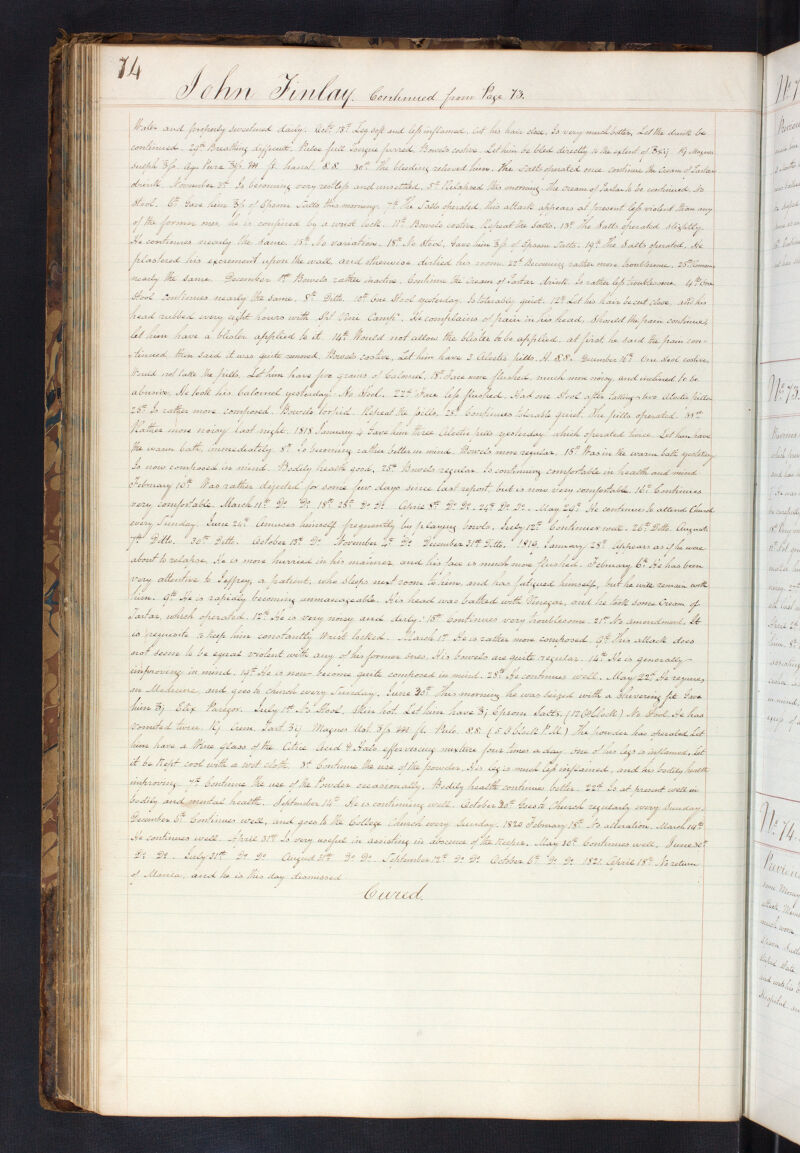 74
John Finlay. Continued from Page 73.
Water and properly sweetened daily. Octr. 18th Leg soft and less inflamed, cut his hair close, Is very much better, Let the drink be
continued. 29th Breathing difficult. Pulse full Tongue furred, Bowels costive. Let him be bled directly to the extent of
Sulph ʒſs. Aqu Pura ft. haust. S.S. 30th The bleeding relieved him. The Salts operated once continue the Cream of Tartar
drink. November 3d Is becoming very restless and unsettled. 5th Relapsed this morning. The cream of Tartar to be continued. No
Stool. 6th Gave him of Epsom Salts this morning. 7th The Salts operated, this attack appears at present less violent than any
of the former ones, he is confined by a wrist lock. 11th Bowels costive Repeat the Salts. 13th The Salts operated slightly.
He continues nearly the same. 15th No variation. 18th No Stool, Gave him of Epsom Salts. 19th The Salts operated. He
plastered his excrement upon the wall and otherwise dirtied his room. 22d Becoming rather more troublesome. 25th
nearly the same. December 1st Bowels rather inactive. Continue the Cream of Tartar drink. Is rather less troublesome. 4th One
Stool continues nearly the same. 8th Ditto. 10th One Stool yesterday. Is tolerably quiet. 12th Let his hair be cut close, and his
head rubbed every eight hours with Spt Vini Camph. He complains of pain in his head. Should the pain continue
let him have a blister applied to it. 14th Would not allow the blister to be applied, at first he said the pain con-
tinued then said it was quite removed. Bowels costive, Let him have 3 pills. H.S.S. December 16th One Stool costive.
Would not take the pills. Let him have five grains of Calomel. 18th Face more flushed, much more noisy, and inclined to be
abusive. He took his Calomel yesterday. No Stool. 22d Face less flushed. Had one Stool after taking two pills
25th Is rather more composed. Bowels torpid. Repeat the pills. 28th Continues tolerable quiet. The pills operated. 31st
Rather more noisy last night. 1818 January 4 Gave him three pills yesterday which operated twice. Let him have
the warm bath, immediately. 8th Is becoming rather better in mind. Bowels more regular. 15th Was in the warm bath yesterday
Is now composed in mind. Bodily health good. 25th Bowels regular. Is continuing comfortable in health and mind.
February 10th Was rather dejected for some few days since last report, but is now very comfortable. 16th Continues
very comfortable. March 11th Do Do. 18th 28th Do Do. April 8th Do Do. 24th Do Do. May 29th He continues to attend Church
every Sunday. June 24th Amuses himself frequently by playing bowls. July 12th Continues well. 26th Ditto. August
7th Ditto. 30th Ditto. October 13th Do. November 2d Do December 31st Ditto. 1819. January 28th Appears as if he were
about to relapse. He is more hurried in his manner and his face is much more flushed. February 6th He has been
very attentive to Jeffrey, a patient, who sleeps next room to him, and has fatigued himself, but he will remain with
him. 9th He is rapidly becoming unmanageable. His head was bathed with Vinegar, and he took some Cream of
Tartar, which operated. 12th He is very noisy and dirty. 15th Continues very troublesome. 21st No amendment. It
is requisite to keep him constantly Wrist locked. March 1st He is rather more composed. 9th This attack does
not seem to be equal violent with any of his former ones. His bowels are quite regular. 14th He is generally
improving in mind. 19th He is now become quite composed in mind. 28th He continues well. May 22d He requires
no Medicine, and goes to church every Sunday. June 30th This morning he was seized with a shivering fit. Gave
him Elix Paregor. July 1st No Stool. Skin hot. Let him have Epsom Salts. (12 OClock) No Stool. He has
vomited twice. Crem Tart Magnes Ust. ft. Pulv. S.S. (5 OClock P.M.) The powder has operated. Let
him have a Wine glass of the Citric Acid & Kali effervescing mixture four times a day, one of his legs is inflamed, let
it be kept cool with a wet cloth. 3d Continue the use of the powder. His leg is much less inflamed, and his bodily health
improving. 7th Continue the use of the Powder occasionally. Bodily health continues better. 22d Is at present well in
bodily and mental health. September 14th He is continuing well. October 20th Goes to Church regularly every Sunday.
December 5th Continues well, and goes to the College Church every Sunday. 1820 February 18th No alteration. March 14th
He continues well. April 31st Is very useful in assisting in absence of the Keeper. May 10th Continues well. June 30th
Do Do. July 21st Do Do August 31st Do Do. September 12th Do Do October 6th Do Do 1821 April 18th No return
of Mania, and he is this day dismissed
Cured.
No 73.
No 74.